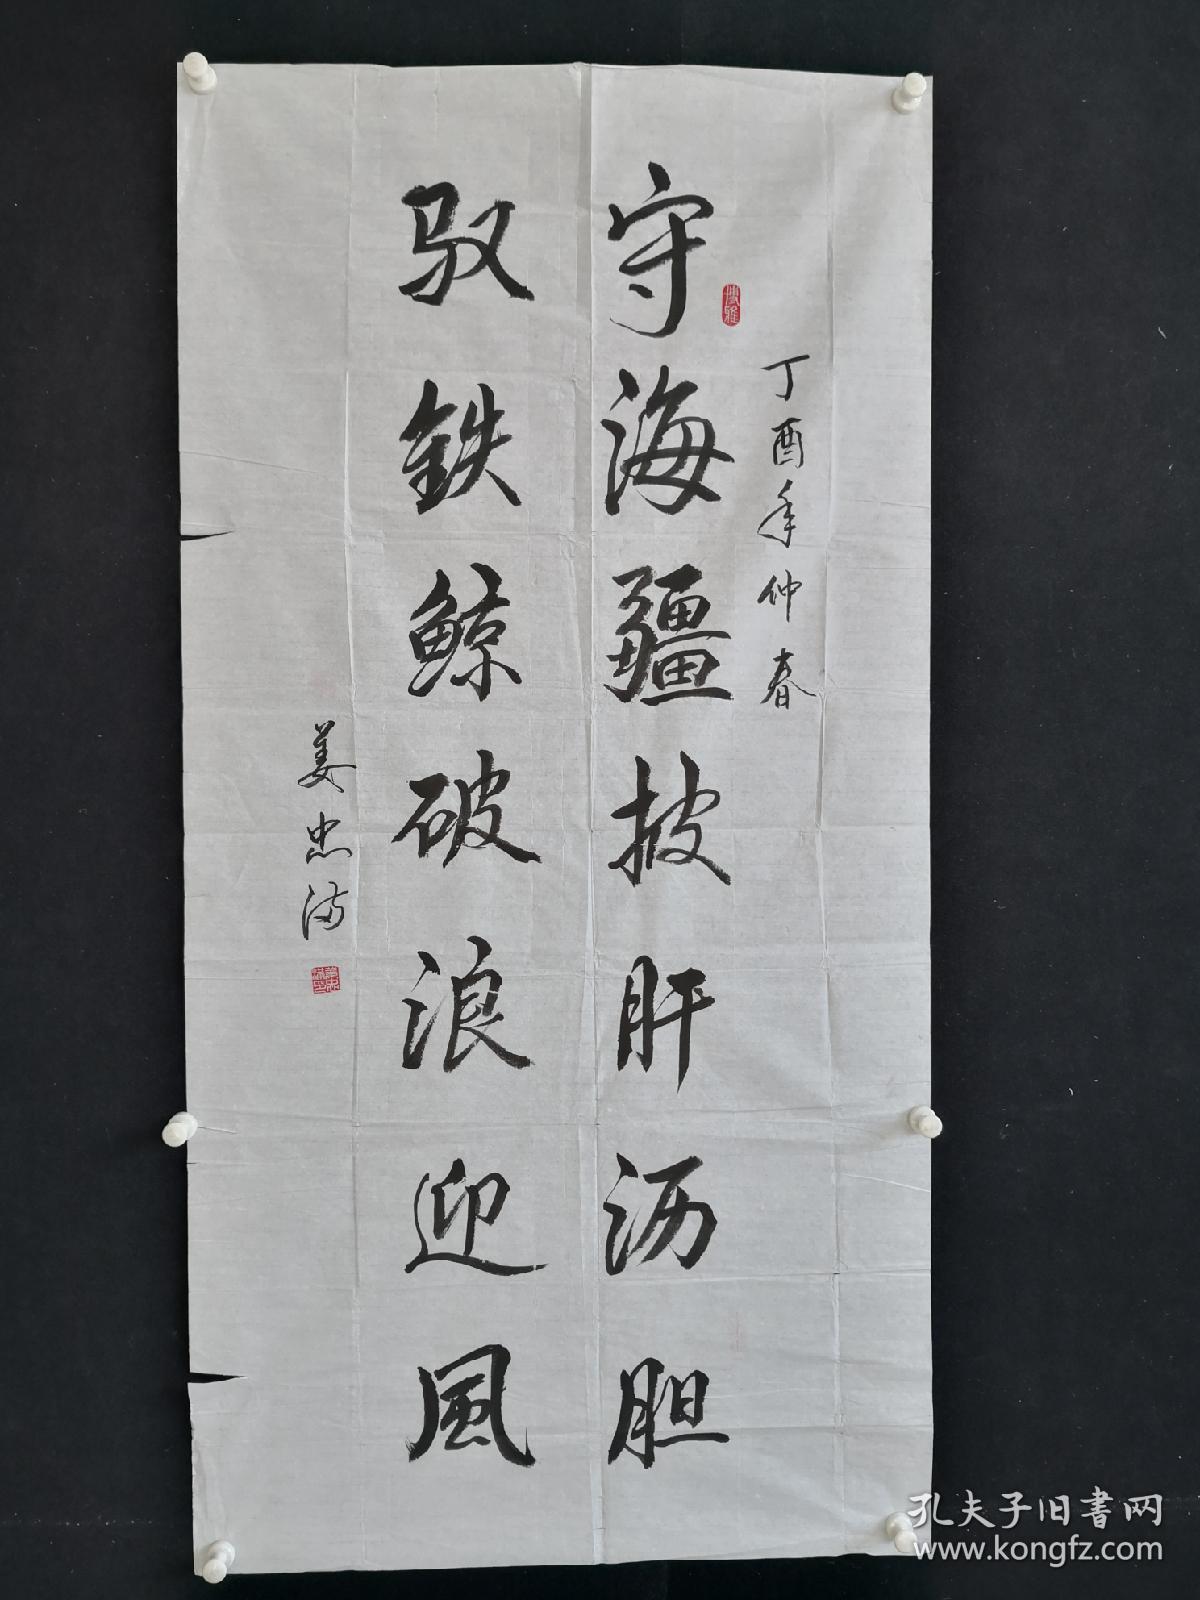 丁酉年仲春
守海疆披肝沥胆
驭铁鲸破浪迎風
姜忠满
博雅
孔夫子旧書网
www.kongfz.com